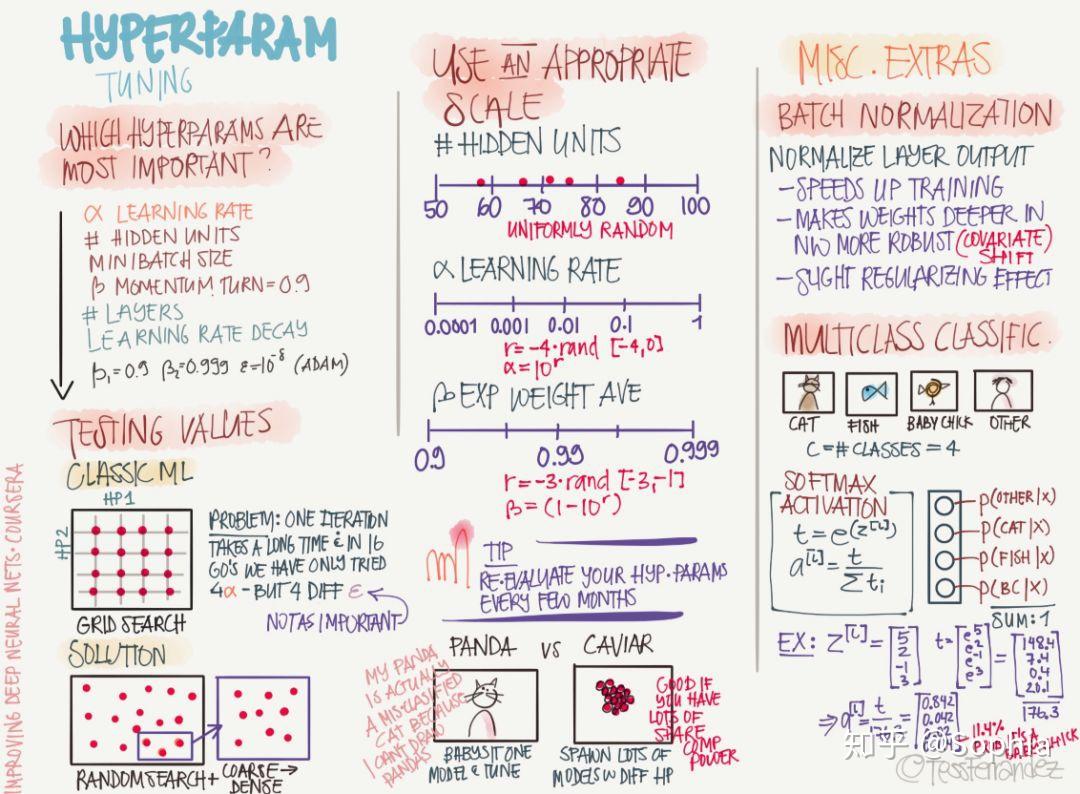 HYPERPARAM
TUNING
WHICH HYPERPARAMS ARE
MOST IMPORTANT?
α LEARNING RATE
# HIDDEN UNITS
MINIBATCH SIZE
β MOMENTUM TURN=0.9
# LAYERS
LEARNING RATE DECAY
β₁=0.9 β₂=0.999 ε=10⁻⁸ (ADAM)
TESTING VALUES
CLASSIC ML
HP1
HP2
PROBLEM: ONE ITERATION
TAKES A LONG TIME & IN 16
GO'S WE HAVE ONLY TRIED
4α - BUT 4 DIFF ε
NOT AS IMPORTANT
GRID SEARCH
SOLUTION
RANDOM SEARCH +
COARSE→
DENSE
IMPROVING DEEP NEURAL NETS · COURSERA
USE AN APPROPRIATE
SCALE
# HIDDEN UNITS
50 60 70 80 90 100
UNIFORMLY RANDOM
α LEARNING RATE
0.0001 0.001 0.01 0.1 1
r=-4·rand [-4,0]
α=10ʳ
β EXP WEIGHT AVE
0.9 0.99 0.999
r=-3·rand [-3,-1]
β=(1-10ʳ)
TIP
RE-EVALUATE YOUR HYP.PARAMS
EVERY FEW MONTHS
PANDA VS CAVIAR
MY PANDA
IS ACTUALLY
A MISCLASSIFIED
CAT BECAUSE
I CAN'T DRAW
PANDAS
BABYSIT ONE
MODEL & TUNE
SPAWN LOTS OF
MODELS W DIFF HP
GOOD IF
YOU HAVE
LOTS OF
SPARE
COMP
POWER
MISC. EXTRAS
BATCH NORMALIZATION
NORMALIZE LAYER OUTPUT
-SPEEDS UP TRAINING
-MAKES WEIGHTS DEEPER IN
NW MORE ROBUST (COVARIATE)
SHIFT
-SLIGHT REGULARIZING EFFECT
MULTICLASS CLASSIFIC.
CAT FISH BABY CHICK OTHER
C=# CLASSES = 4
SOFTMAX
ACTIVATION
t=e^(z^[L])
a^[L]=t/∑tᵢ
P(OTHER|X)
P(CAT|X)
P(FISH|X)
P(BC|X)
SUM:1
EX: Z^[L]=[5 2 -1 3] t=[e⁵ e² e⁻¹ e³]=[148.4 7.4 0.4 20.1]
176.3
⇒a^[L]=t/176.3=[0.842 0.042
11.4%
知乎 @Sophia
@TessFerrandez